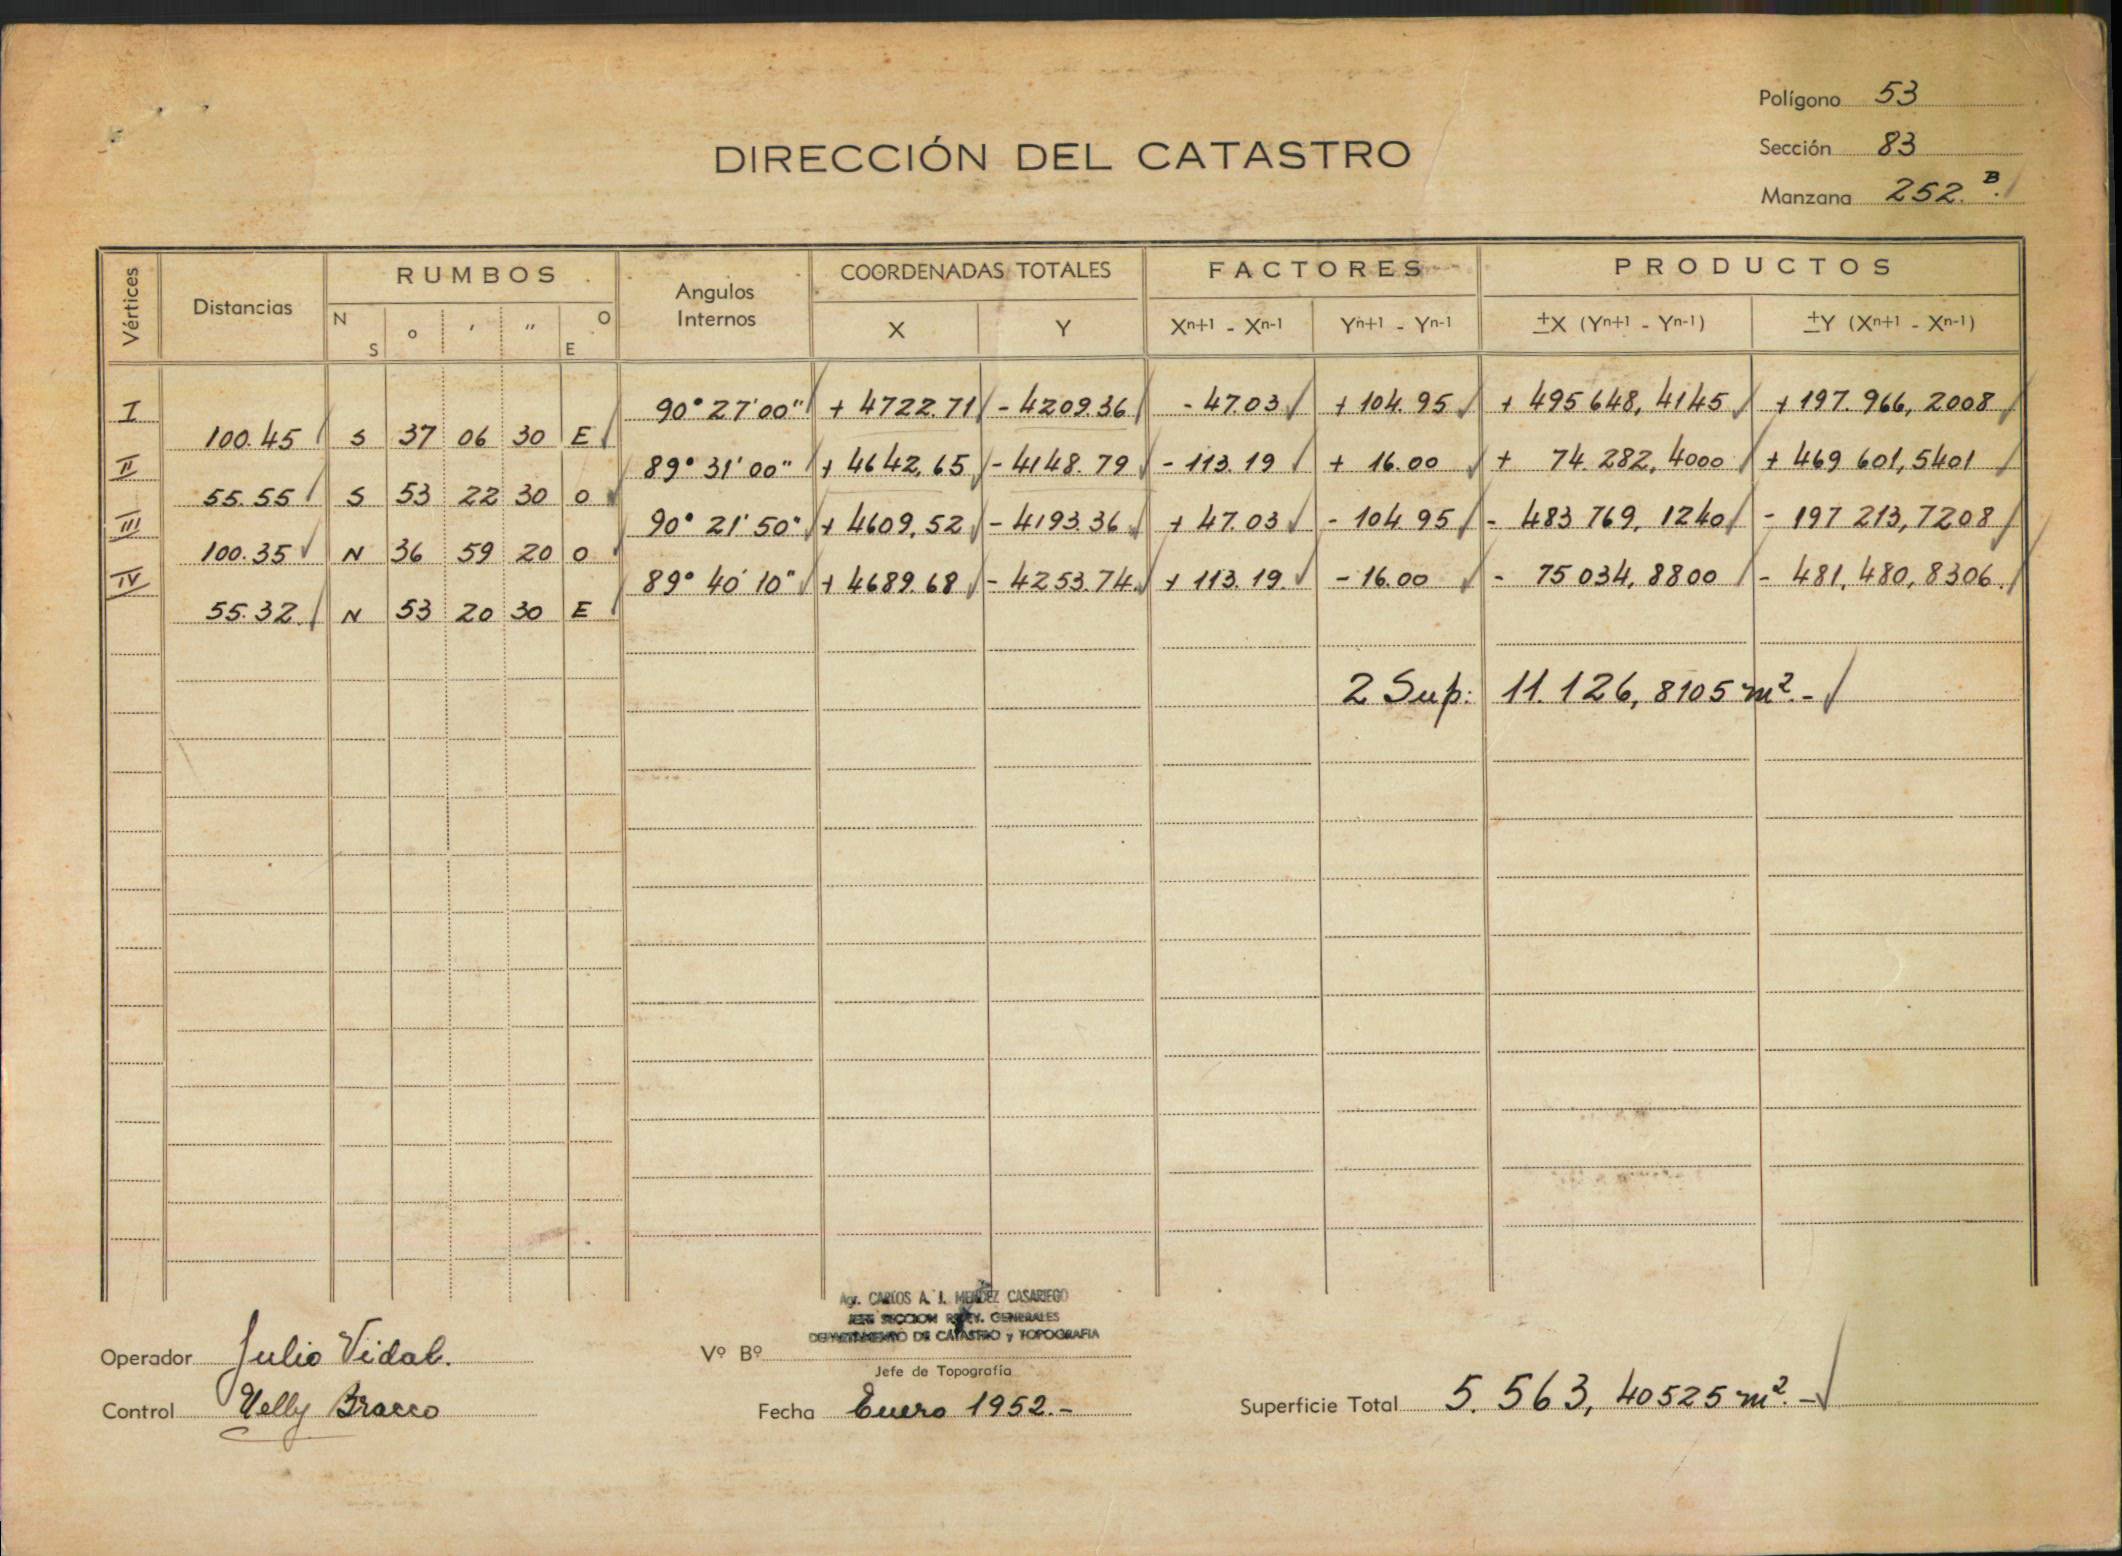 Polígono 53
DIRECCIÓN DEL CATASTRO
Sección 83
Manzana 252. B.
Vértices Distancias RUMBOS Angulos Internos COORDENADAS TOTALES FACTORES PRODUCTOS
N S o ' " O E X Y Xn+1 - Xn-1 Yn+1 - Yn-1 ±X (Yn+1 - Yn-1) ±Y (Xn+1 - Xn-1)
I 90° 27' 00" + 4722.71 - 4209.36 - 47.03 + 104.95 + 495 648, 4145 + 197. 966, 2008
100.45 S 37 06 30 E
II 89° 31' 00" + 4642,65 - 4148.79 - 113.19 + 16.00 + 74. 282, 4000 + 469 601, 5401
55.55 S 53 22 30 O
III 90° 21' 50" + 4609,52 - 4193.36 + 47.03 - 104.95 - 483 769, 1240 - 197 213, 7208
100.35 N 36 59 20 O
IV 89° 40' 10" + 4689.68 - 4253.74 + 113.19. - 16.00 - 75 034, 8800 - 481, 480, 8306.
55.32. N 53 20 30 E
2 Sup: 11.126, 8105 m². -
Agr. CARLOS A. I. MENDEZ CASARIEGO
JEFE SECCION RELEV. GENERALES
DEPARTAMENTO DE CATASTRO y TOPOGRAFIA
Operador Julio Vidal. Vº Bº
Jefe de Topografía
Control Nelly Bracco Fecha Enero 1952.- Superficie Total 5. 563, 40525 m². -